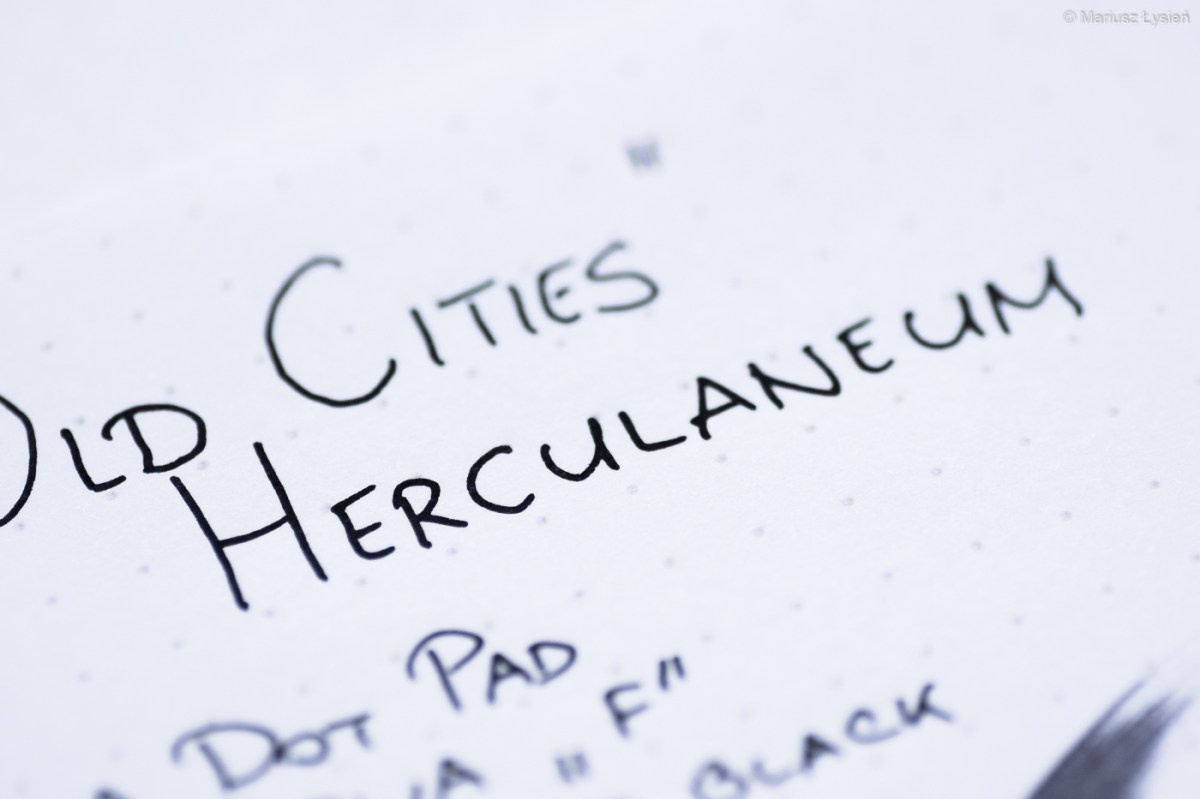 © Mariusz Łysień
OLD CITIES
HERCULANEUM
DOT PAD
"F"
BLACK